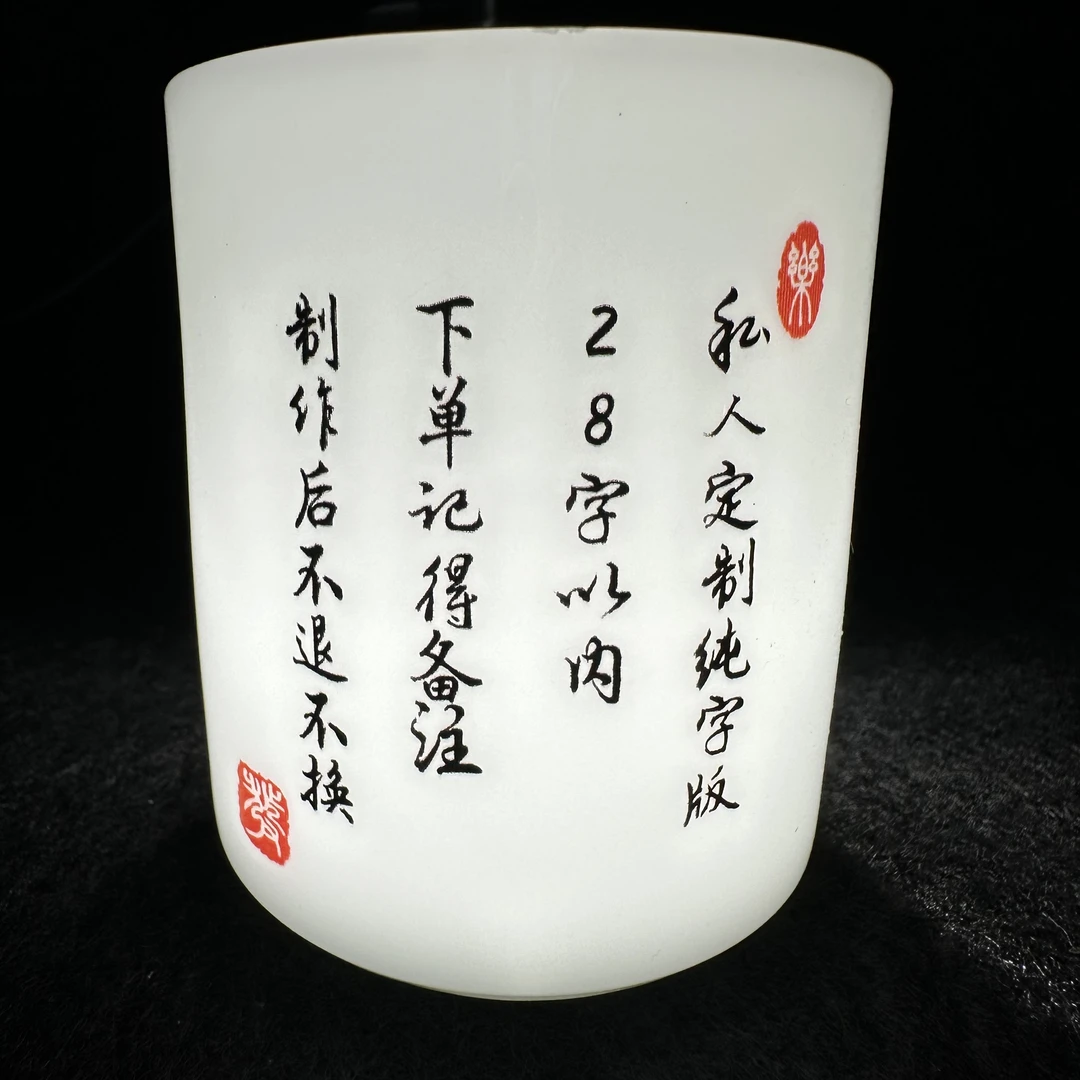 樂
私人定制纯字版
28字以内
下单记得备注
制作后不退不换